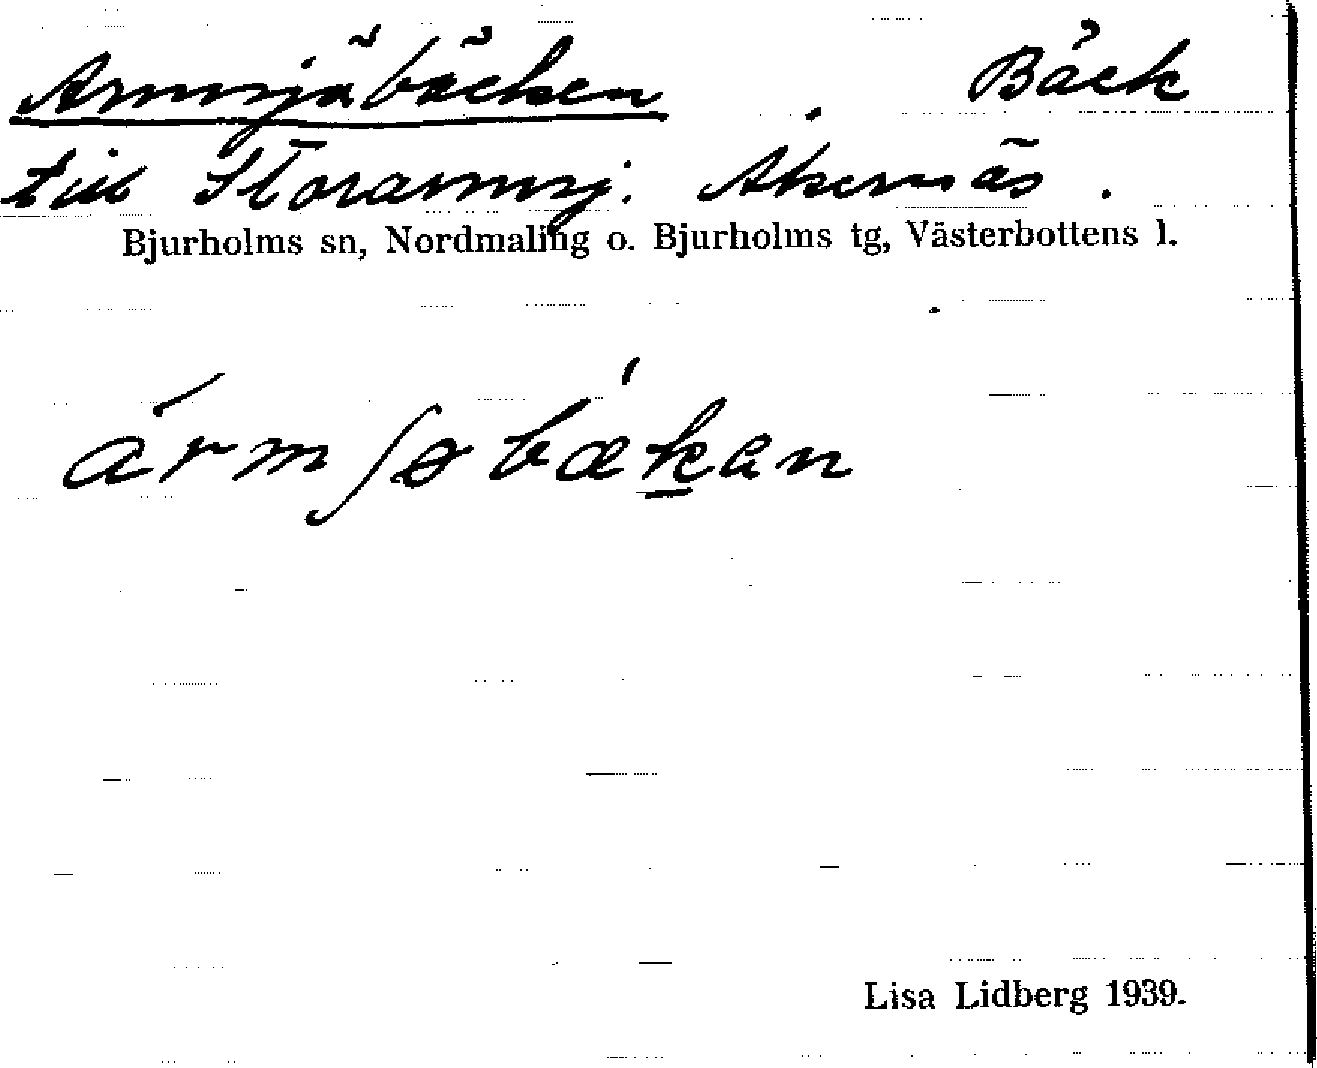 Armsjöbäcken Bäck
till Storarmsj. Åkernäs.
Bjurholms sn, Nordmaling o. Bjurholms tg, Västerbottens l.
ármʃøbæ'k̲an
Lisa Lidberg 1939.